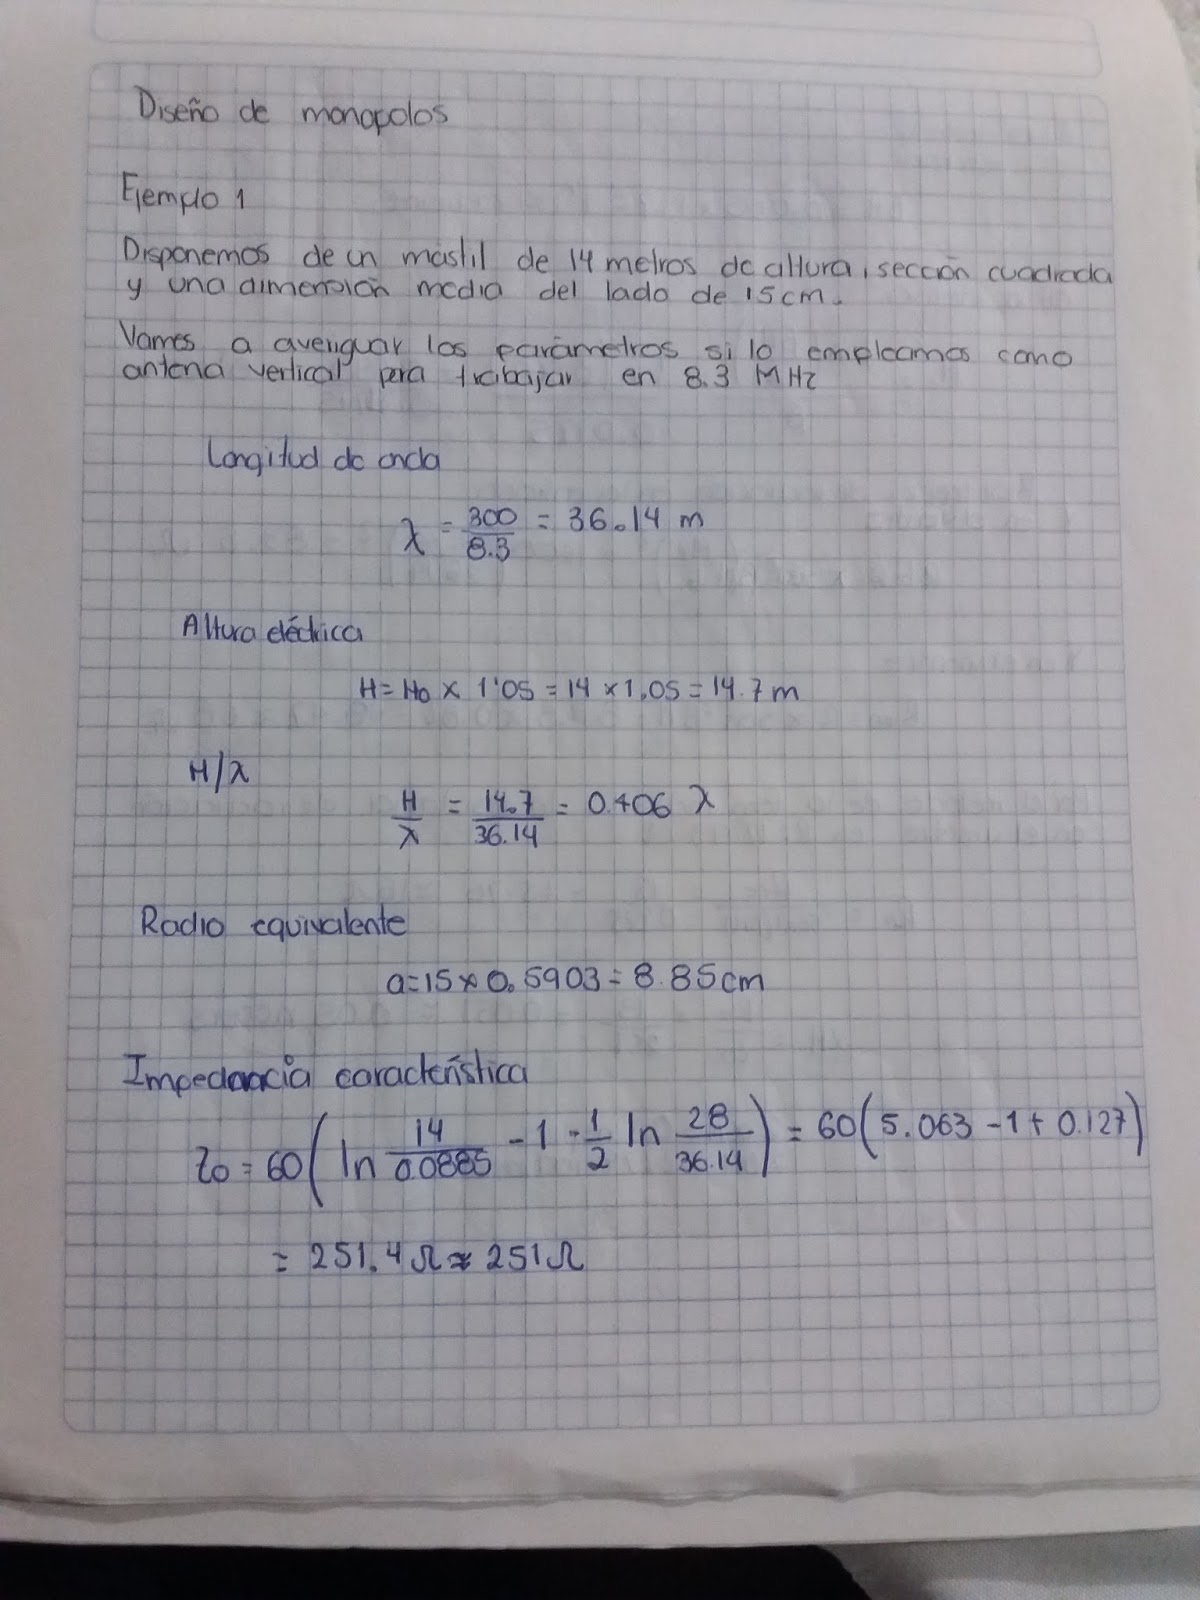 Diseño de monopolos
Ejemplo 1
Disponemos de un mastil de 14 metros de altura, sección cuadrada
y una dimensión media del lado de 15 cm.
Vamos a averiguar los parámetros si lo empleamos como
antena vertical para trabajar en 8.3 MHz
Longitud de onda
λ = 300/8.3 = 36.14 m
Altura eléctrica
H = Ho × 1'05 = 14 × 1,05 = 14.7 m
H/λ
H/λ = 14.7/36.14 = 0.406 λ
Radio equivalente
a = 15 × 0.5903 = 8.85 cm
Impedancia característica
Zo = 60 ( ln 14/0.0885 - 1 - 1/2 ln 28/36.14 ) = 60 ( 5.063 - 1 + 0.127 )
= 251.4 Ω ≈ 251 Ω